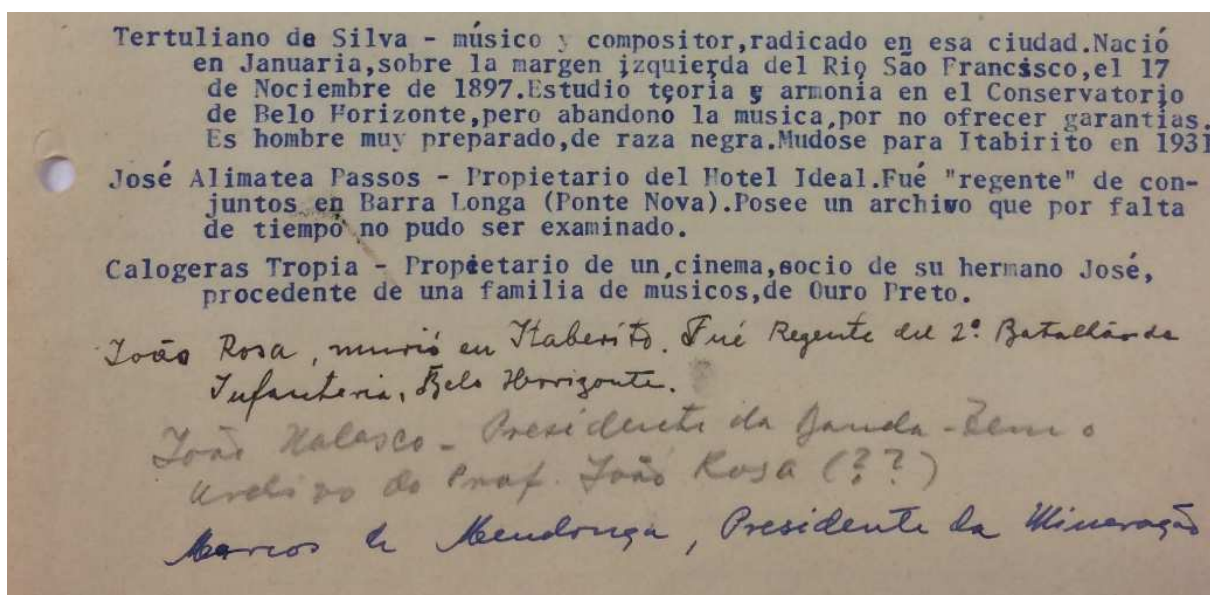 Tertuliano de Silva - músico y compositor,radicado en esa ciudad.Nació
en Januaria,sobre la margen izquierda del Rio São Francisco,el 17
de Nociembre de 1897.Estudio teoria y armonia en el Conservatorio
de Belo Horizonte,pero abandono la musica,por no ofrecer garantias.
Es hombre muy preparado,de raza negra.Mudose para Itabirito en 1931
José Alimatea Passos - Propietario del Hotel Ideal.Fué "regente" de con-
juntos en Barra Longa (Ponte Nova).Posee un archivo que por falta
de tiempo no pudo ser examinado.
Calogeras Tropia - Propietario de un cinema,socio de su hermano José,
procedente de una familia de musicos,de Ouro Preto.
João Rosa, murió en Itaberito. Fué Regente del 2º. Batalhão de
Infanteria, Belo Horrizonte.
João Nalasco - Presidente da Banda - Tem o
archivo do Prof. João Rosa (??)
Marcos de Mendonça, Presidente da Mineração